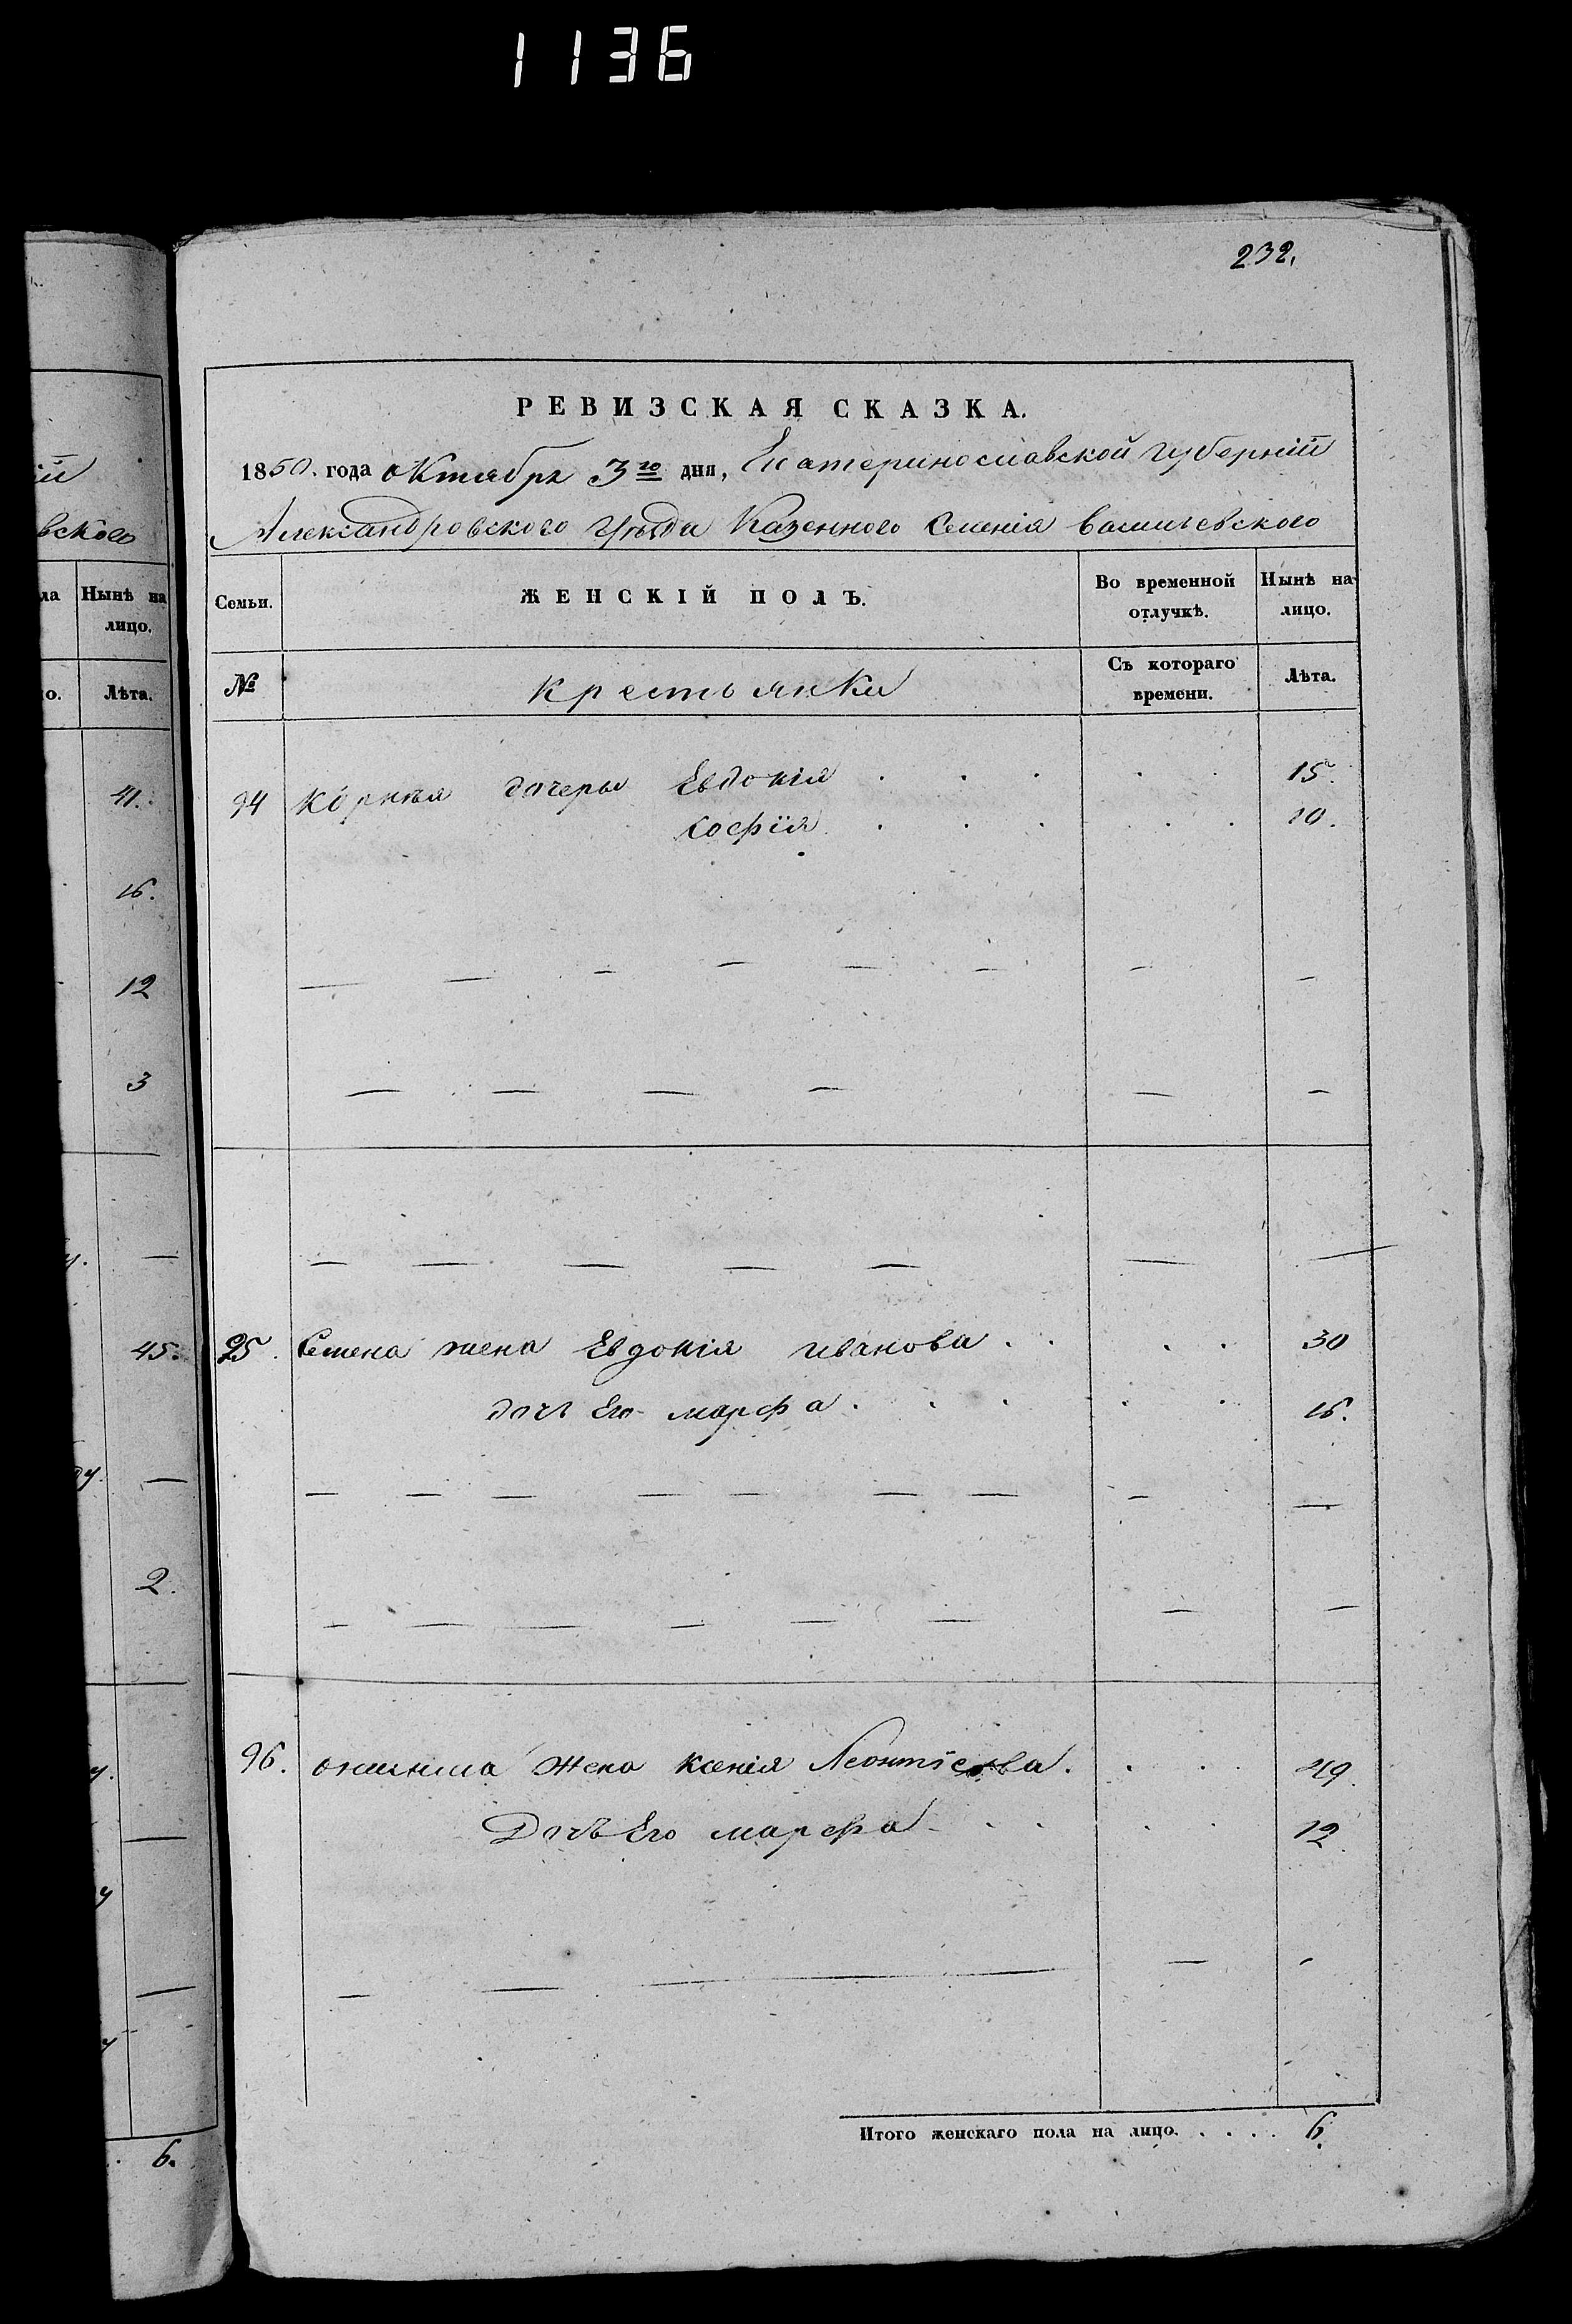 1136
232.
РЕВИЗСКАЯ СКАЗКА.
1850. года октября 3го дня, Екатеринославской губерніи
Александровского уѣзда Казенного Селенія Васильевского
вского
ла Нынѣ на лицо.
о. Лѣта.
Семьи. ЖЕНСКІЙ ПОЛЪ. Во временной отлучкѣ. Нынѣ на лицо.
№ крестьянки Съ котораго времени. Лѣта.
41. 94 Корнѣя дочеры Евдокія 15.
софія 10.
16.
12
3
45. 95. Семена жена Евдокія иванова 30
дочь Его марфа 16.
2.
96. жена ксенія Леонтіева 49.
Дочь Его марфа 12
Итого женскаго пола на лицо. 6.
6.